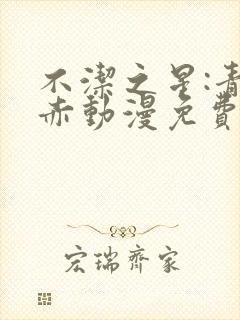 不潔之星:青
赤動漫免費
宏瑞齊家